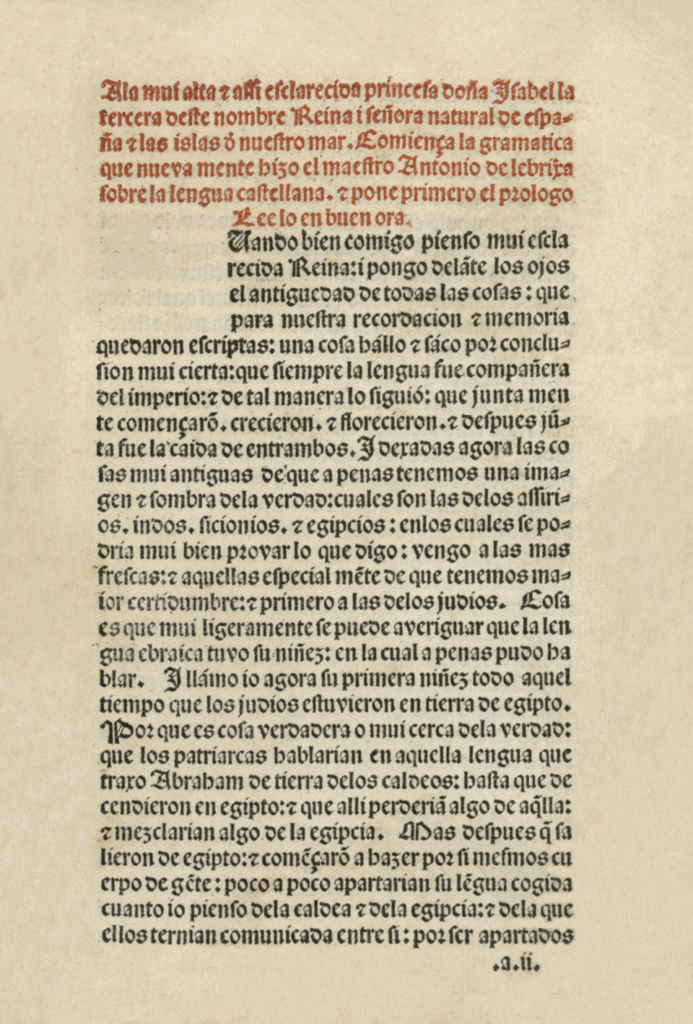 A la mui alta ⁊ assi esclarecida princesa doña Isabel la
tercera deste nombre Reina i señora natural de espa⸗
ña ⁊ las islas ð nuestro mar. Comiença la gramatica
que nueva mente hizo el maestro Antonio de lebrixa
sobre la lengua castellana. ⁊ pone primero el prologo
Lee lo en buen ora.
Uando bien comigo pienso mui escla
recida Reina: i pongo delãte los ojos
el antiguedad de todas las cosas: que
para nuestra recordacion ⁊ memoria
quedaron escriptas: una cosa hállo ⁊ sáco por conclu⸗
sion mui cierta: que siempre la lengua fue compañera
del imperio: ⁊ de tal manera lo siguió: que junta men
te començarõ. crecieron. ⁊ florecieron. ⁊ despues jũ⸗
ta fue la caida de entrambos. I dexadas agora las co
sas mui antiguas de que a penas tenemos una ima⸗
gen ⁊ sombra dela verdad: cuales son las delos assiri⸗
os. indos. sicionios. ⁊ egipcios: enlos cuales se po⸗
dria mui bien provar lo que digo: vengo a las mas
frescas: ⁊ aquellas especial mẽte de que tenemos ma⸗
ior certidumbre: ⁊ primero a las delos judios. Cosa
es que mui ligeramente se puede averiguar que la len
gua ebraica tuvo su niñez: en la cual a penas pudo ha
blar. I llámo io agora su primera niñez todo aquel
tiempo que los judios estuvieron en tierra de egipto.
Por que es cosa verdadera o mui cerca dela verdad:
que los patriarcas hablarian en aquella lengua que
traxo Abraham de tierra delos caldeos: hasta que de
cendieron en egipto: ⁊ que alli perderiã algo de aq̃lla:
⁊ mezclarian algo de la egipcia. Mas despues q̃ sa
lieron de egipto: ⁊ comẽçarõ a hazer por si mesmos cu
erpo de gẽte: poco a poco apartarian su lẽgua cogida
cuanto io pienso dela caldea ⁊ dela egipcia: ⁊ dela que
ellos ternian comunicada entre si: por ser apartados
.a.ii.